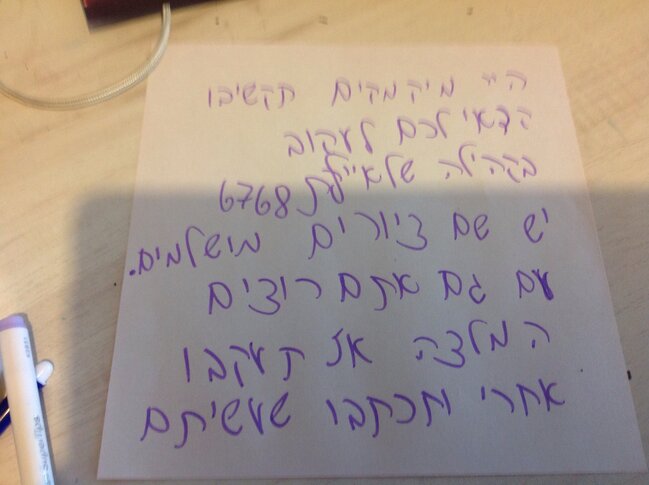 היי מיקמקים תקשיבו
כדאי לכם לעקוב
בקהילה שלאיילת6768
יש שם ציורים מושלמים.
עם גם אתם רוצים
המלצה אז תעקבו
אחרי ותכתבו שעשיתם